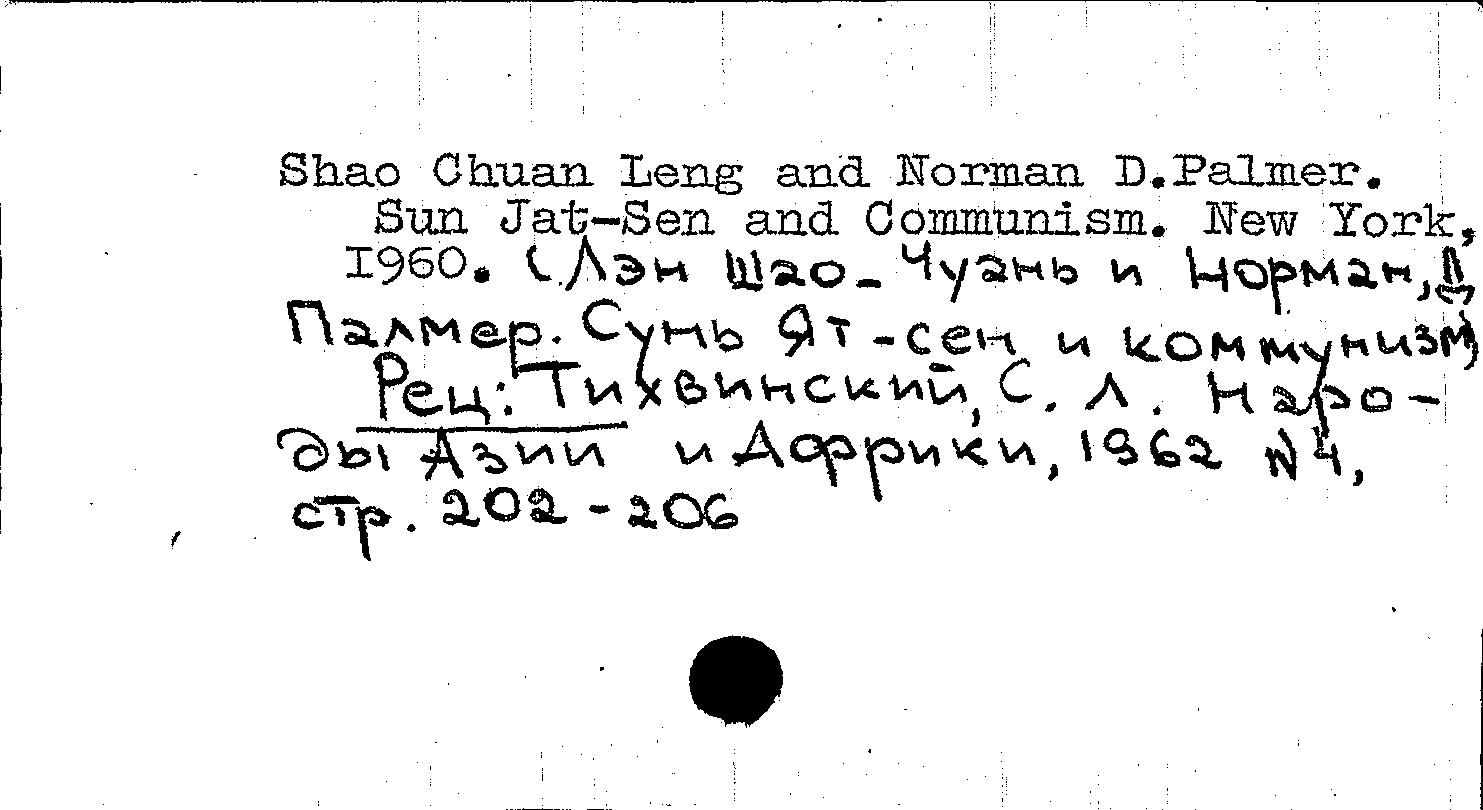 Shao Chuan Leng and Norman D.Palmer.
Sun Jat-Sen and Communism. New York,
I960. (Лэн Шао-Чуань и Норман, Д
Палмер. Сунь Ят-сен и коммунизм)
Рец: Тихвинский, С. Л. Наро-
ды Азии и Африки, 1962 N4,
стр. 202-206